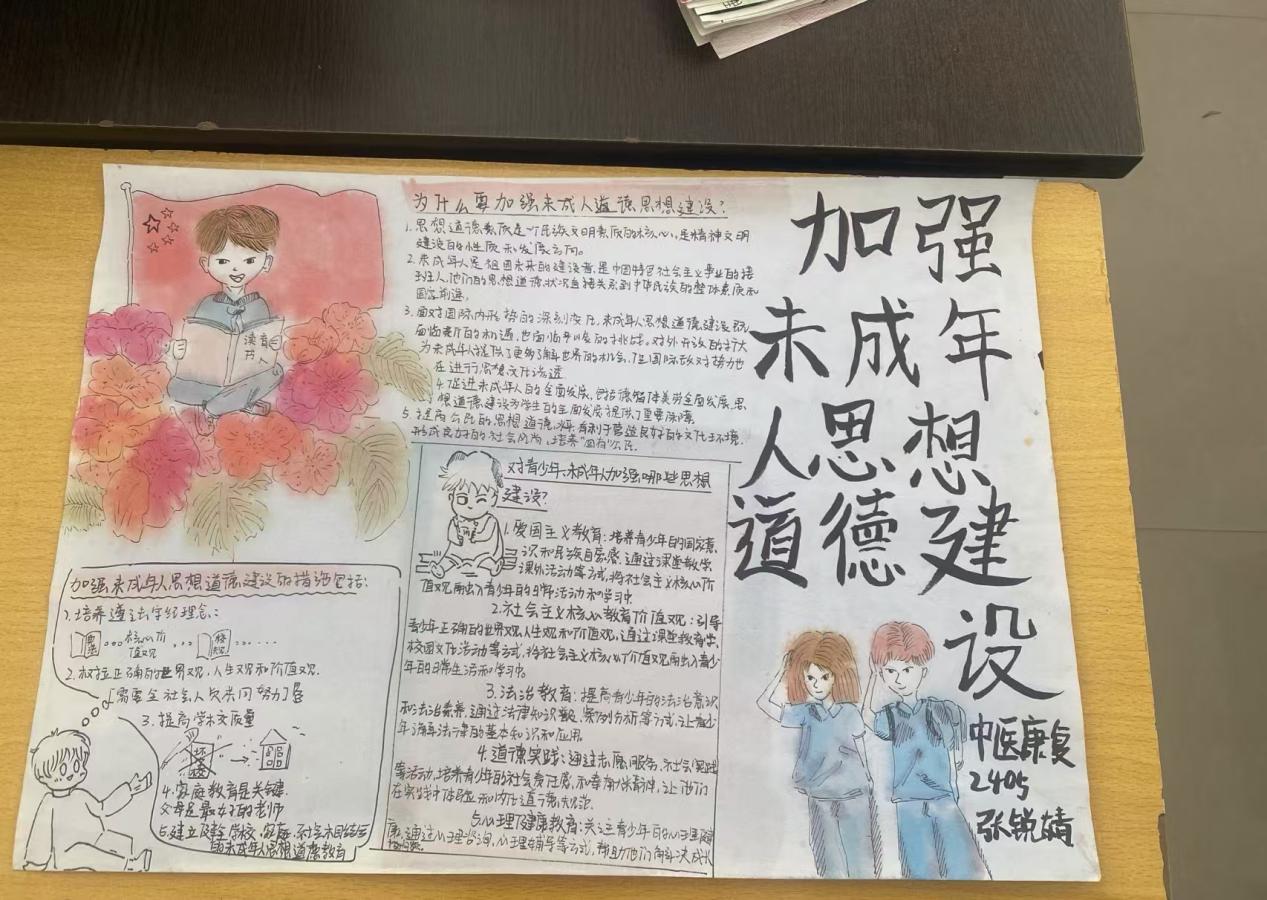 加强
未成年
人思想
道德建
设
中医康复
2405
张锐婧
读书
育人
为什么要加强未成人道德思想建设?
1.思想道德素质是一个民族文明素质的核心,是精神文明
建设的性质和发展方向。
2.未成年人是祖国未来的建设者,是中国特色社会主义事业的接
班人,他们的思想道德状况直接关系到中华民族的整体素质和
国家前途。
3.面对国际内形势的深刻变化,未成年人思想道德建设既
面临新的机遇,也面临严峻的挑战。对外开放的扩大
为未成年人提供了更多了解世界的机会,但国际敌对势力也
在进行思想文化渗透
4.促进未成年人的全面发展,包括德智体美劳全面发展,思
想道德建设为学生的全面发展提供了重要保障
5.提高公民的思想道德水平,有利于营造良好的文化环境,
形成良好的社会风尚,培养"四有"公民.
对青少年、未成年人加强哪些思想
建设?
1.爱国主义教育:培养青少年的国家意
识和民族自豪感,通过课堂教学
课外活动等方式,将社会主义核心价
值观融入青少年的日常活动和学习中
2.社会主义核心教育价值观:引导
青少年正确的世界观,人生观和价值观,通过课堂教育学,
校园文化活动等方式,将社会主义核心价值观融入青少
年的日常生活和学习中。
3.法治教育:提高青少年的法治意识
和法治素养,通过法律知识 案例分析等方式,让青少
年了解法律的基本知识和应用
4.道德实践:通过志愿服务、社会实践
等活动,培养青少年的社会责任感和奉献精神,让他们
在实践中体验和内化道德规范.
5.心理健康教育:关注青少年的心理健
康,通过心理咨询,心理辅导等方式,帮助他们解决成长
加强未成年人思想道德建设的措施包括:
1.培养遵法守纪理念:
核心价
值观
2.树立正确的世界观,人生观和价值观.
[需要全社会人次共同努力]
3.提高学校质量
4.家庭教育是关键
父母是最好的老师
5.建立及整学校、家庭、社会相结合
的未成年人思想道德教育